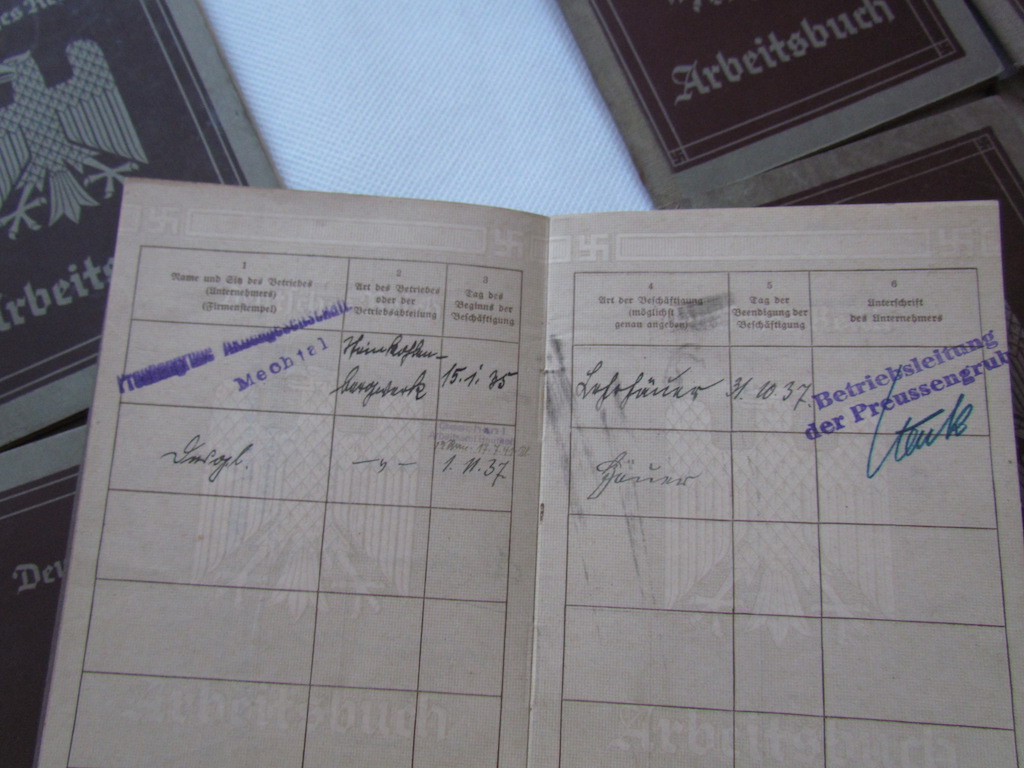 Arbeitsbuch
Arbeits
Deu
1
Name und Sitz des Betriebes
(Unternehmers)
(Firmenstempel)
2
Art des Betriebes
oder der
Betriebsabteilung
3
Tag des
Beginns der
Beschäftigung
4
Art der Beschäftigung
(möglichst
genau angeben)
5
Tag der
Beendigung der
Beschäftigung
6
Unterschrift
des Unternehmers
Preussengrube Aktiengesellschaft
Mechtal
Steinkohlen-
bergwerk
15.1.35
Lehrhäuer
31.10.37.
Betriebsleitung
der Preussengrub
Desgl.
— " —
1.11.37
Häuer
Arbeitsbuch
Arbeitsbuch